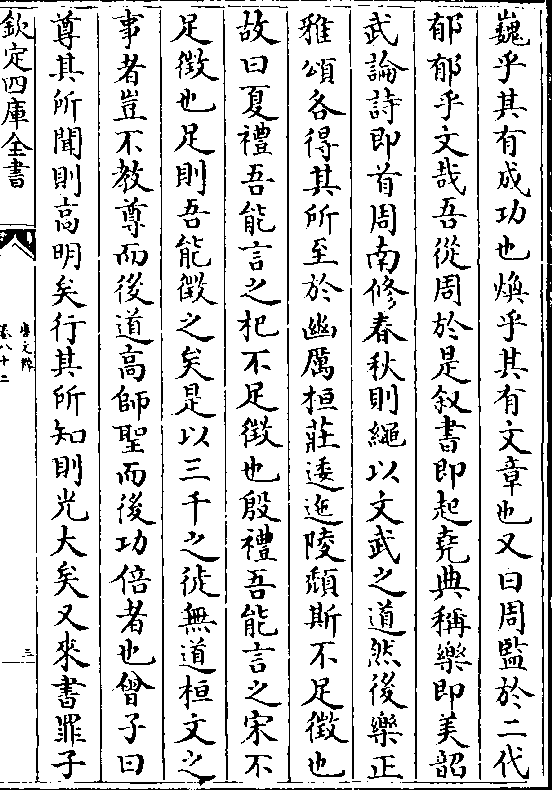 巍乎其有成功也煥乎其有文章也又曰周監於二代
郁郁乎文哉吾從周於是叙書即起堯典稱樂即美韶
武論詩即首周南修春秋則繩以文武之道然後樂正
雅頌各得其所至於幽厲桓莊逶迤陵頽斯不足徵也
故曰夏禮吾能言之杞不足徵也殷禮吾能言之宋不
足徵也足則吾能徵之矣是以三千之徒無道桓文之
事者豈不教尊而後道高師聖而後功倍者也曾子曰
尊其所聞則高明矣行其所知則光大矣又來書罪子
欽定四庫全書
唐文粹
卷八十二
三